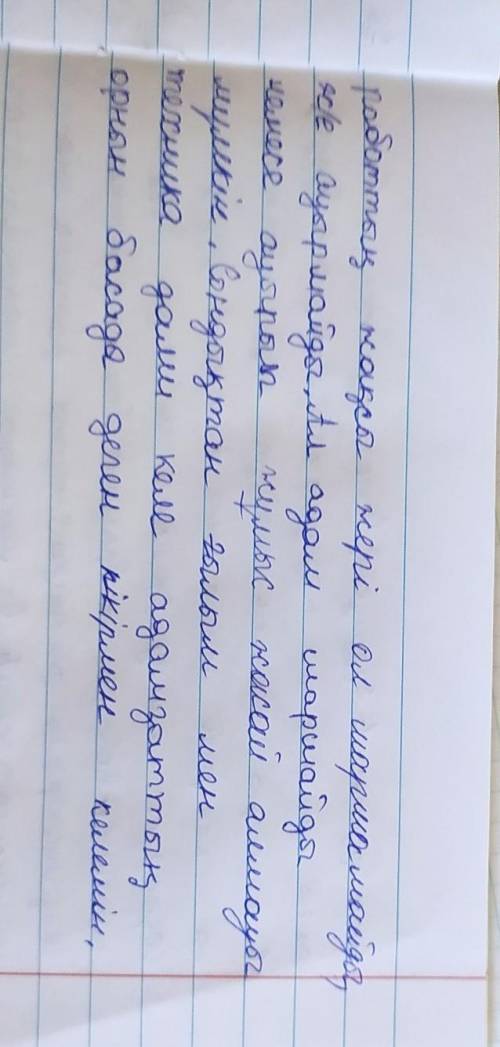 Роботтың жақсы жері ол шаршамайды,
әрі ауырмайды, Ал адам шаршайды
немесе ауырып жұмыс жасай алмауы
мүмкін. Сондықтан ғылым мен
техника дами келе адамзаттың
орнын басада деген пікірмен келемін.